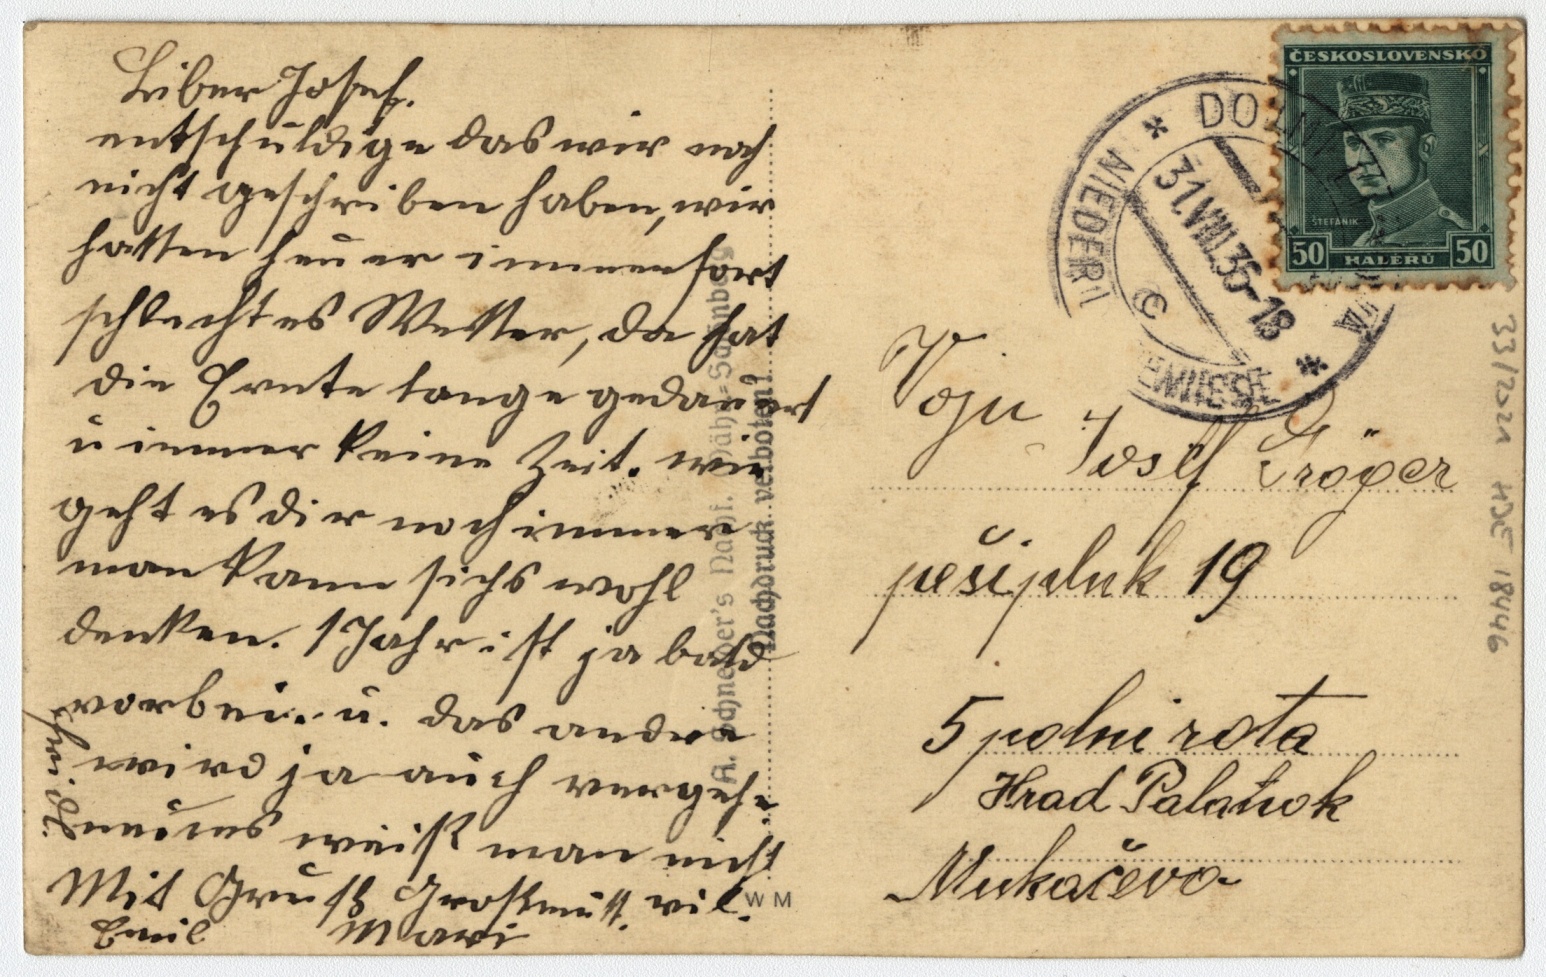 Lieber Josef.
entschuldige das wir noch
nicht geschrieben haben, wir
hatten heuer immerfort
schlechtes Wetter, da hat
die Ernte lange gedauert
u immer keine Zeit. wie
geht es dir noch immer
man kann sichs wohl
denken. 1 Jahr ist ja bald
vorbei. u. das andre
wird ja auch vergehe.
neues weiß man nicht
Mit Gruß Großmutt.
Emil Mari
A. Schneider's Nachf. Mähr-Schönberg
Nachdruck verboten!
W M
ČESKOSLOVENSKO
ŠTEFÁNIK
50 HALÉŘŮ 50
DOLNÍ
31.VIII.35-18
NIEDERL
Voju
Josef Gröger
pěší pluk 19
5 polní rota
Hrad Palanok
Mukačevo
33/2021 HJE 18446